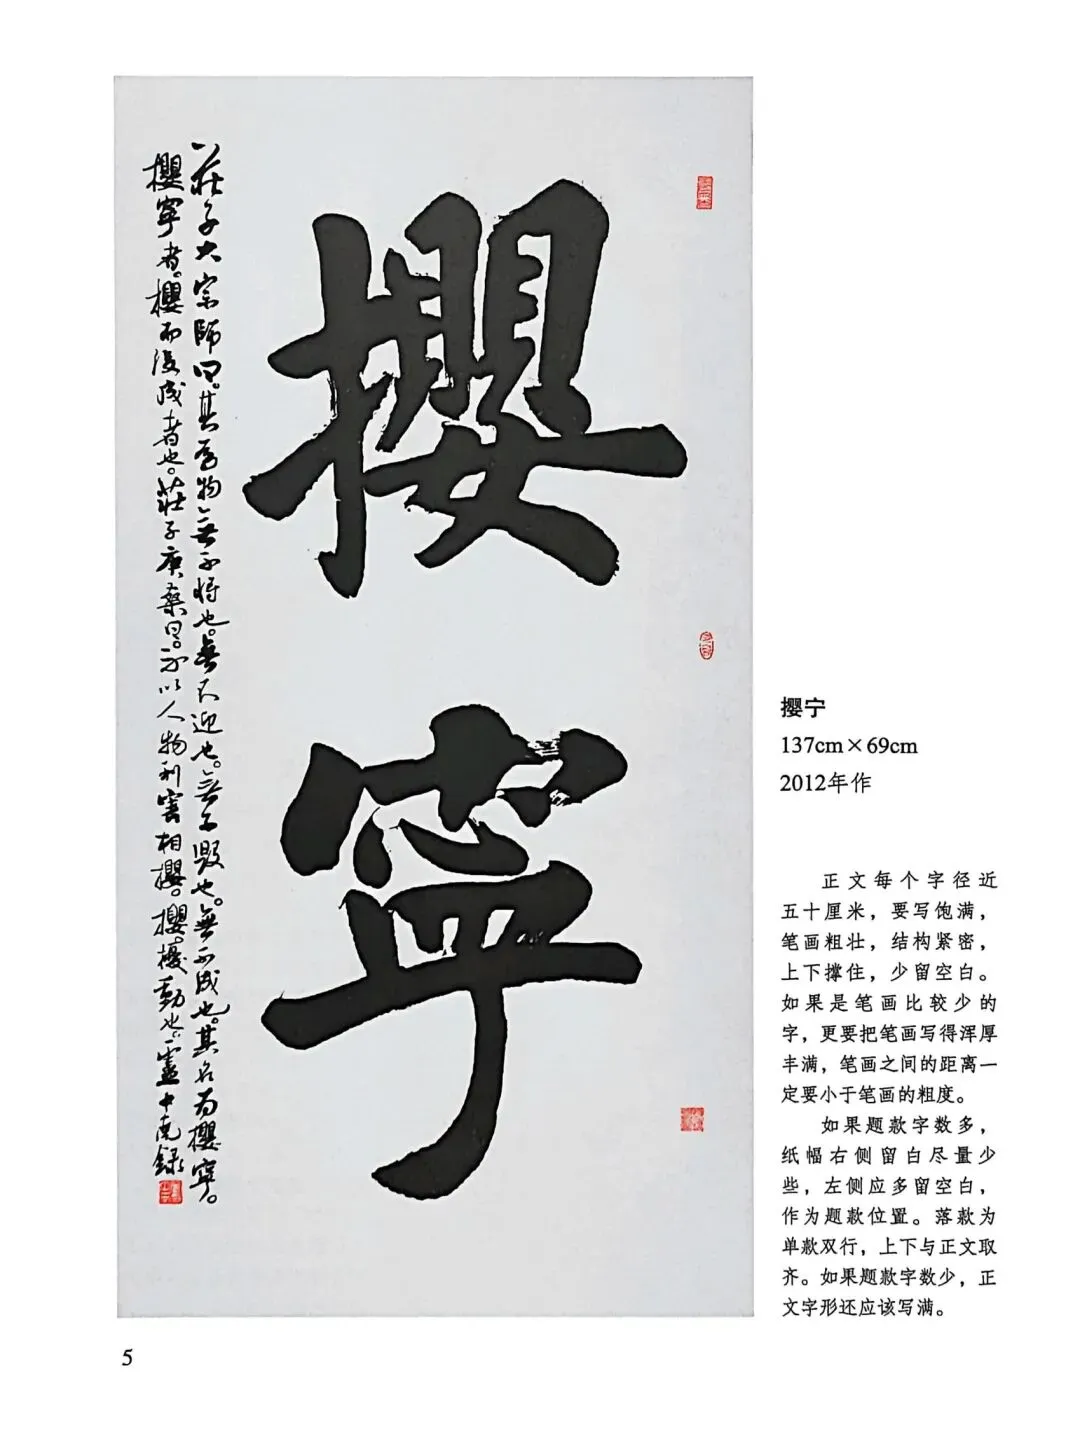 攖寧
莊子大宗師曰。其為物無不將也。無不迎也。無不毀也。無不成也。其名為攖寧。
攖寧者。攖而後成者也。莊子庚桑曰。不以人物利害相攖。攖擾動也。
攖宁
137cm×69cm
2012年作
正文每个字径近
五十厘米，要写饱满，
笔画粗壮，结构紧密，
上下撑住，少留空白。
如果是笔画比较少的
字，更要把笔画写得浑厚
丰满，笔画之间的距离一
定要小于笔画的粗度。
如果题款字数多，
纸幅右侧留白尽量少
些，左侧应多留空白，
作为题款位置。落款为
单款双行，上下与正文取
齐。如果题款字数少，正
文字形还应该写满。
5